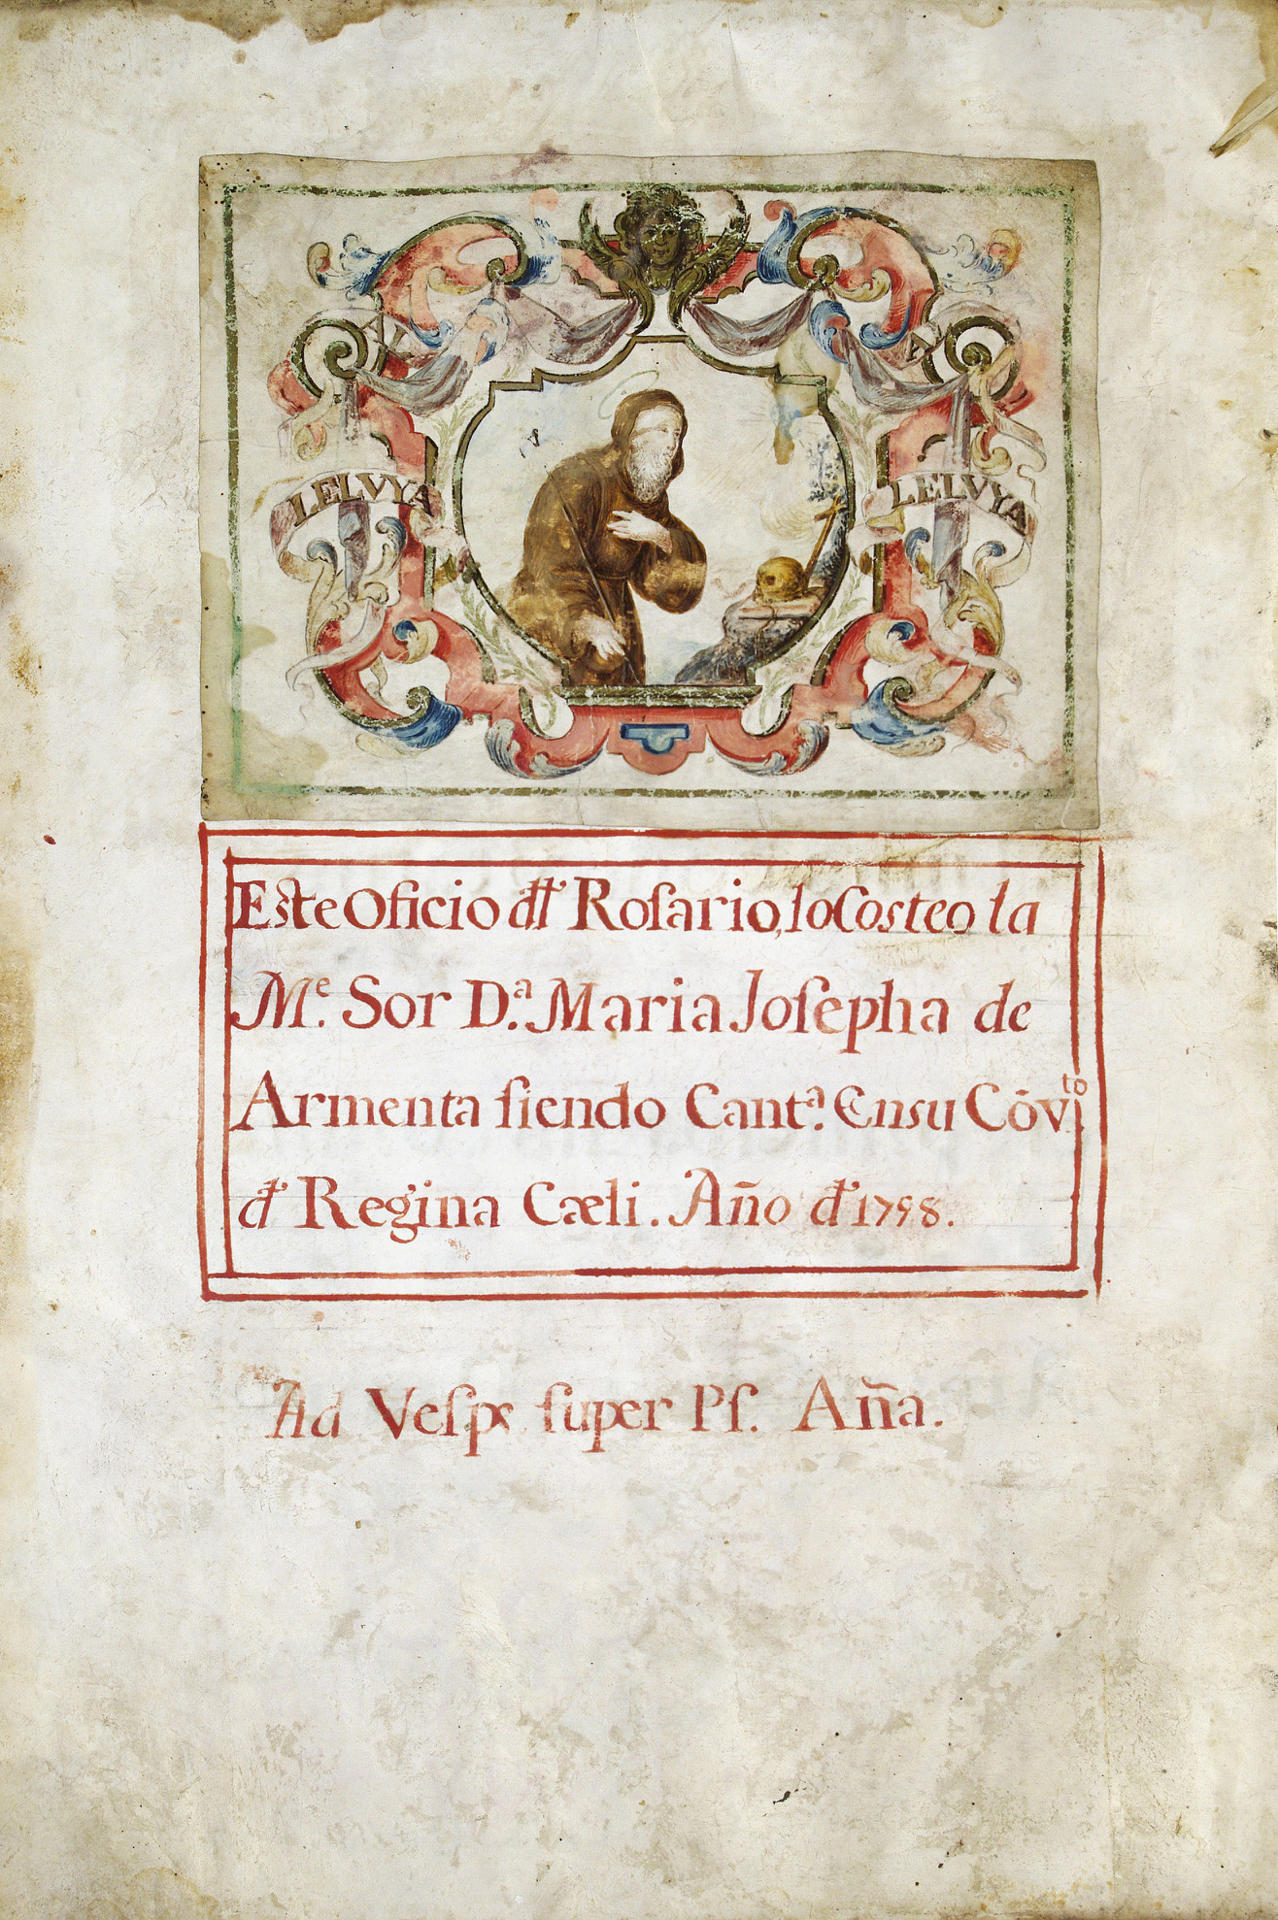 A A
LELVYA LELVYA
Este Oficio đł Roſario, lo Costeo la
Mᵉ. Sor D.ª Maria Joſepha de
Armenta ſiendo Cantª. En su Cōvᵗᵒ.
đ Regina Cæli. Año đ 1798.
Ad Veſpe ſuper Pſ. Aña.